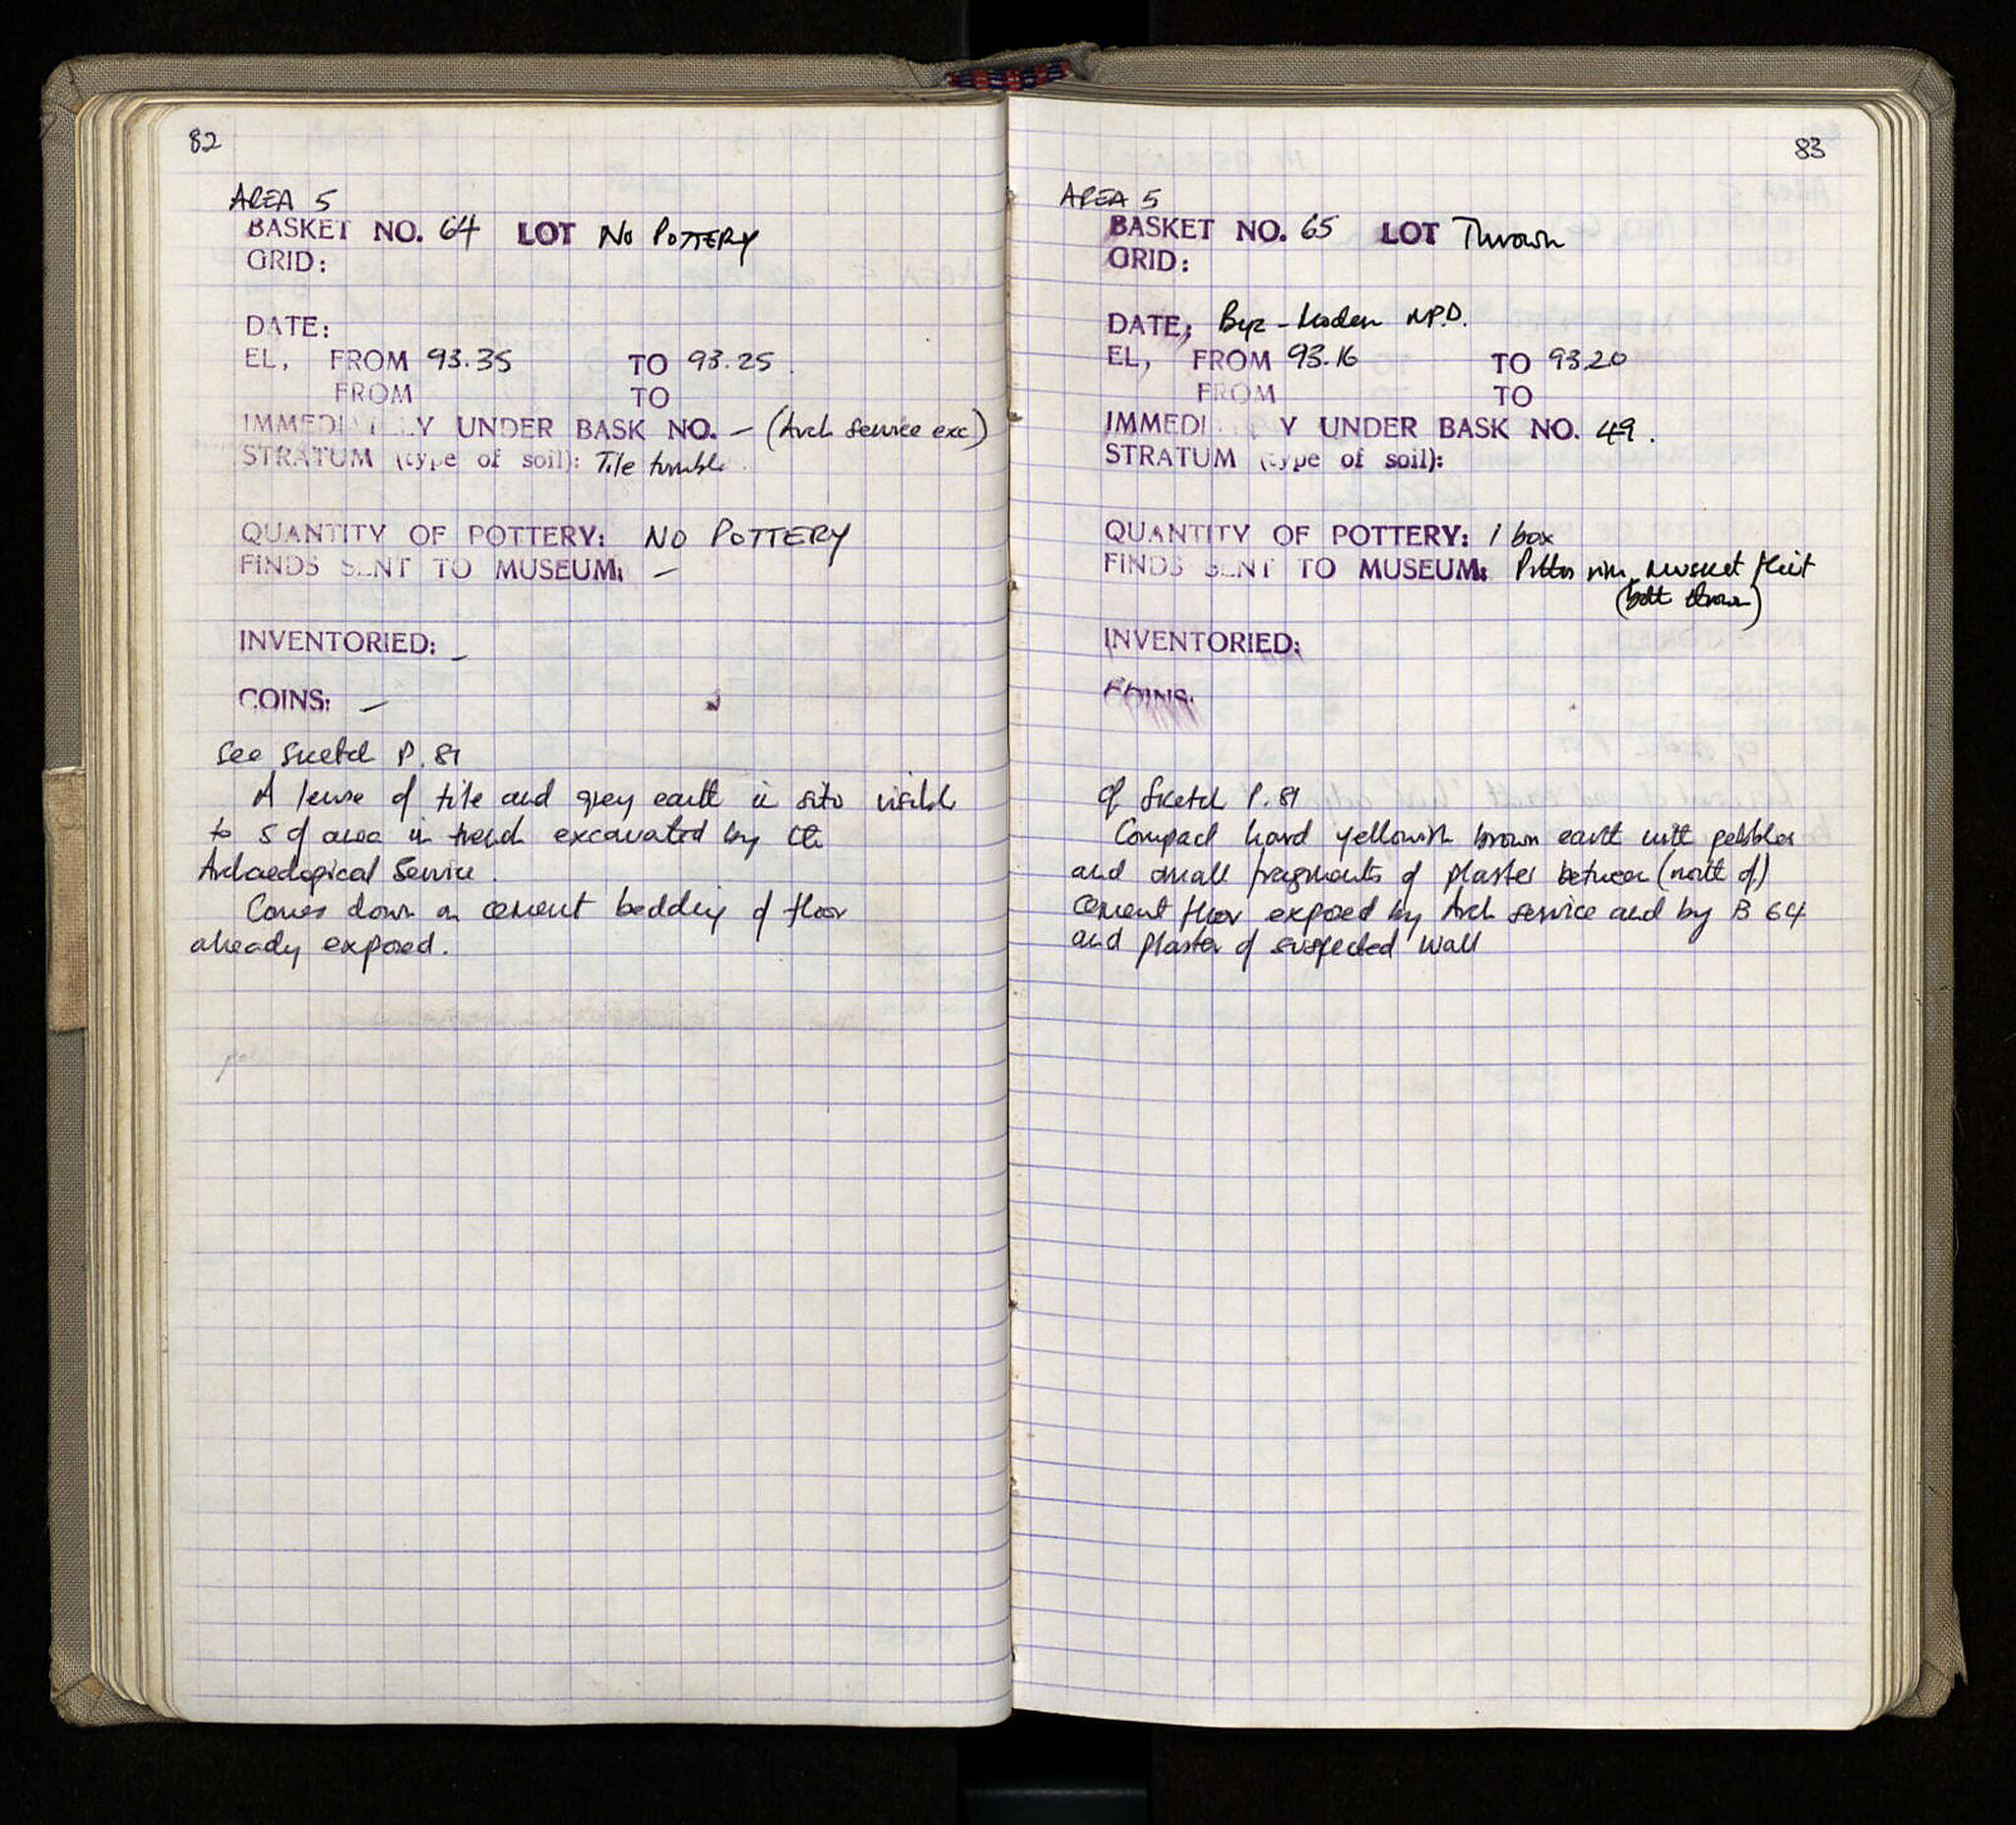 82
AREA 5
BASKET NO. 64 LOT No POTTERY
GRID:
DATE:
EL, FROM 93.35 TO 93.25.
FROM TO
IMMEDI Y UNDER BASK NO. – (Arch Service exc)
STRATUM (type of soil): Tile tumble
QUANTITY OF POTTERY: NO POTTERY
FINDS SENT TO MUSEUM: –
INVENTORIED: –
COINS: –
See Sketch P. 81
A lense of tile and grey earth in situ visible
to S of area in trench excavated by the
Archaeological Service.
Comes down on cement bedding of floor
already exposed.
83
AREA 5
BASKET NO. 65 LOT Thrown
GRID:
DATE; Byz – Modern N.P.D.
EL, FROM 93.16 TO 93.20
FROM TO
IMMEDI Y UNDER BASK NO. 49.
STRATUM (type of soil):
QUANTITY OF POTTERY: 1 box
FINDS SENT TO MUSEUM: Pithos rim, musket flint
(both thrown)
INVENTORIED:
COINS:
cf Sketch P. 81
Compact hard yellowish brown earth with pebbles
and small fragments of plaster between (north of)
cement floor exposed by Arch service and by B 64
and plaster of suspected wall